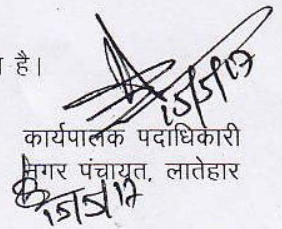 है।
15/5/17
कार्यपालक पदाधिकारी
नगर पंचायत, लातेहार
15/5/17